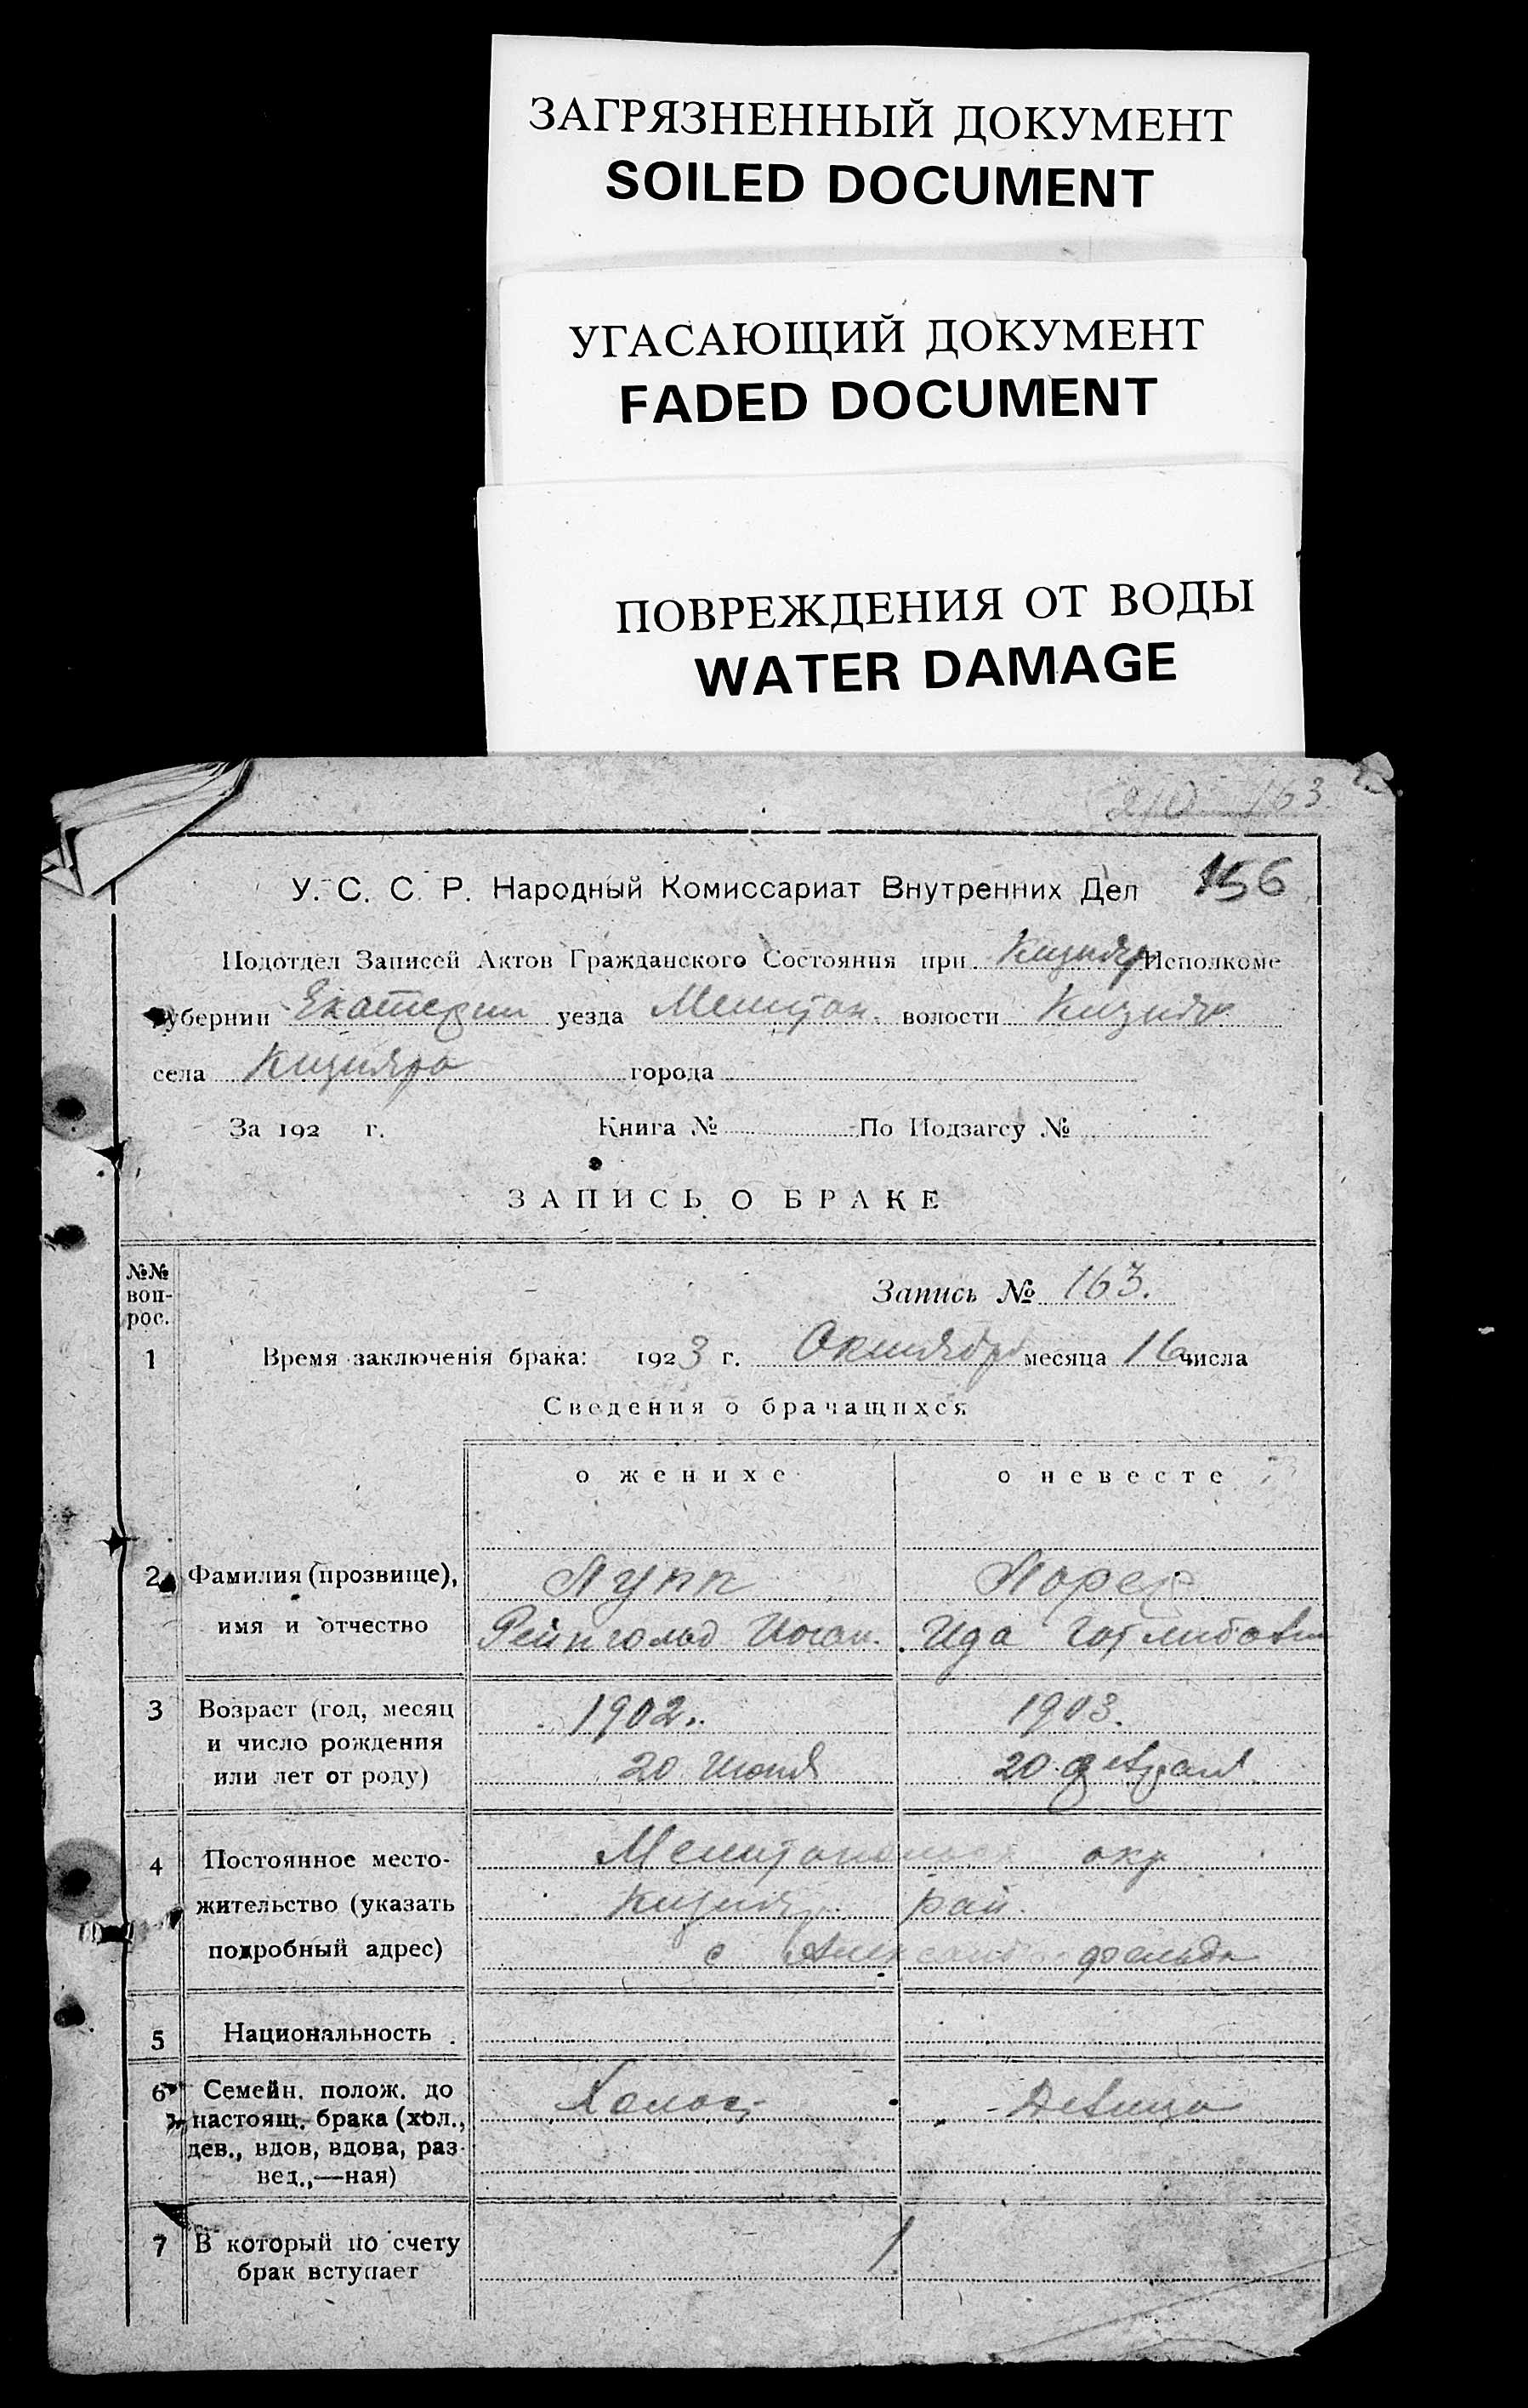 ЗАГРЯЗНЕННЫЙ ДОКУМЕНТ
SOILED DOCUMENT
УГАСАЮЩИЙ ДОКУМЕНТ
FADED DOCUMENT
ПОВРЕЖДЕНИЯ ОТ ВОДЫ
WATER DAMAGE
210 163
156
У. С. С. Р. Народный Комиссариат Внутренних Дел
Подотдел Записей Актов Гражданского Состояния при Кизияр Исполкоме
губернии Екатерин уезда Мелитоп. волости Кизияр
села Кизияра города
За 192 г. Книга № По Подзагсу №
ЗАПИСЬ О БРАКЕ
№№ вопрос.
Запись № 163.
1 Время заключенiя брака: 1923 г. Октября месяца 16 числа
Сведения о брачащихся
о женихе о невесте
2 Фамилия (прозвище), Лупп
имя и отчество Рейнгольд Иоган. Ида Готлибовн
3 Возраст (год, месяц 1902. 1903.
и число рождения
или лет от роду) 20 Июня 20 февраля
4 Постоянное место- Мелитопольск окр
жительство (указать Кизияр. рай.
подробный адрес) с Александрфельда
5 Национальность
6 Семейн. полож. до Холост Девица
настоящ. брака (хол.,
дев., вдов, вдова, раз-
вед.,—ная)
7 В который по счету 1
брак вступает